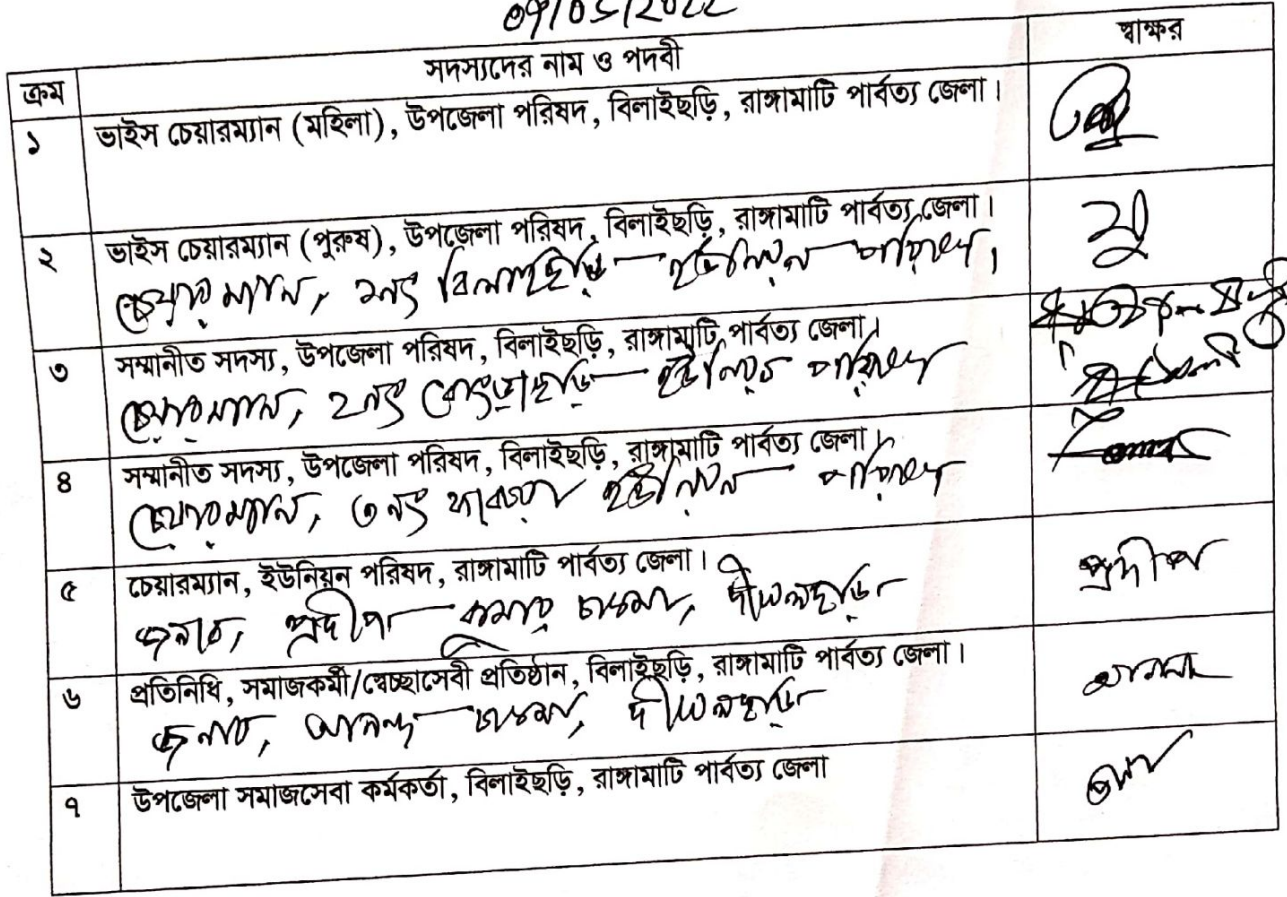 ০৭/০৫/2022
ক্রম সদস্যদের নাম ও পদবী স্বাক্ষর
১ ভাইস চেয়ারম্যান (মহিলা), উপজেলা পরিষদ, বিলাইছড়ি, রাঙ্গামাটি পার্বত্য জেলা।
২ ভাইস চেয়ারম্যান (পুরুষ), উপজেলা পরিষদ, বিলাইছড়ি, রাঙ্গামাটি পার্বত্য জেলা।
চেয়ারম্যান, ১নং বিলাইছড়ি ইউনিয়ন পরিষদ।
৩ সম্মানীত সদস্য, উপজেলা পরিষদ, বিলাইছড়ি, রাঙ্গামাটি পার্বত্য জেলা।
চেয়ারম্যান, ২নং কেংড়াছড়ি ইউনিয়ন পরিষদ
৪ সম্মানীত সদস্য, উপজেলা পরিষদ, বিলাইছড়ি, রাঙ্গামাটি পার্বত্য জেলা।
চেয়ারম্যান, ৩নং ফারুয়া ইউনিয়ন পরিষদ
৫ চেয়ারম্যান, ইউনিয়ন পরিষদ, রাঙ্গামাটি পার্বত্য জেলা।
জনাব, প্রদীপ কুমার চাকমা, দীঘলছড়ি প্রদীপ
৬ প্রতিনিধি, সমাজকর্মী/স্বেচ্ছাসেবী প্রতিষ্ঠান, বিলাইছড়ি, রাঙ্গামাটি পার্বত্য জেলা।
জনাব, আনন্দ চাকমা, দীঘলছড়ি
৭ উপজেলা সমাজসেবা কর্মকর্তা, বিলাইছড়ি, রাঙ্গামাটি পার্বত্য জেলা